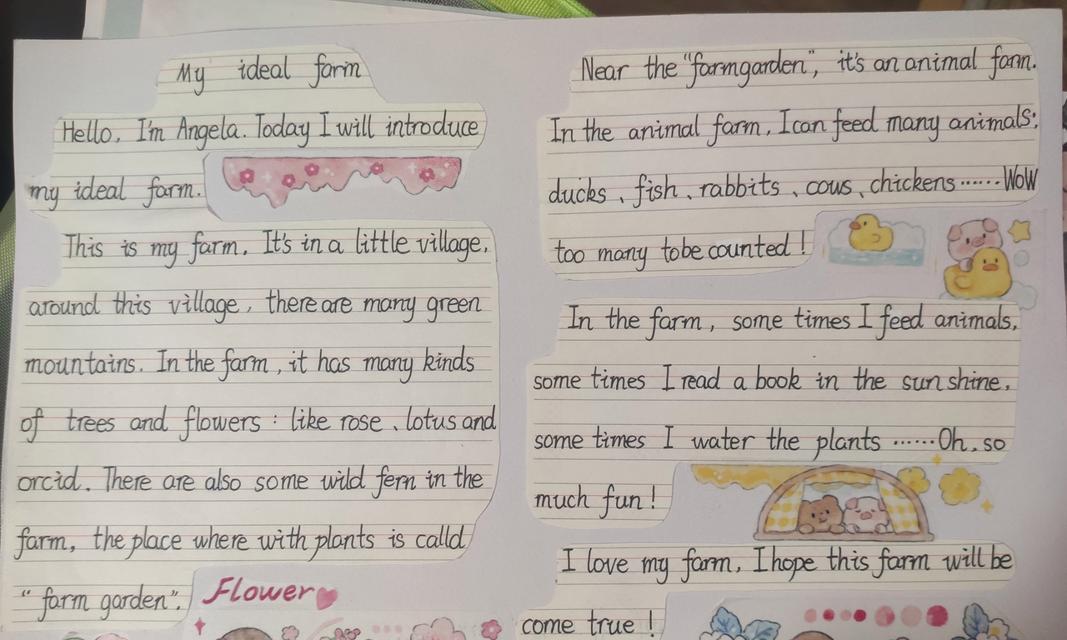 My ideal farm
Hello, I'm Angela. Today I will introduce
my ideal farm.
This is my farm. It's in a little village,
around this village, there are many green
mountains. In the farm, it has many kinds
of trees and flowers : like rose、lotus and
orcid. There are also some wild fern in the
farm, the place where with plants is calld
"farm garden".
Flower
Near the "farmgarden", it's an animal farm.
In the animal farm, I can feed many animals:
ducks、fish、rabbits、cows、chickens……Wow
too many tobe counted!
In the farm, some times I feed animals,
some times I read a book in the sun shine,
some times I water the plants ……Oh, so
much fun!
I love my farm, I hope this farm will be
come true!